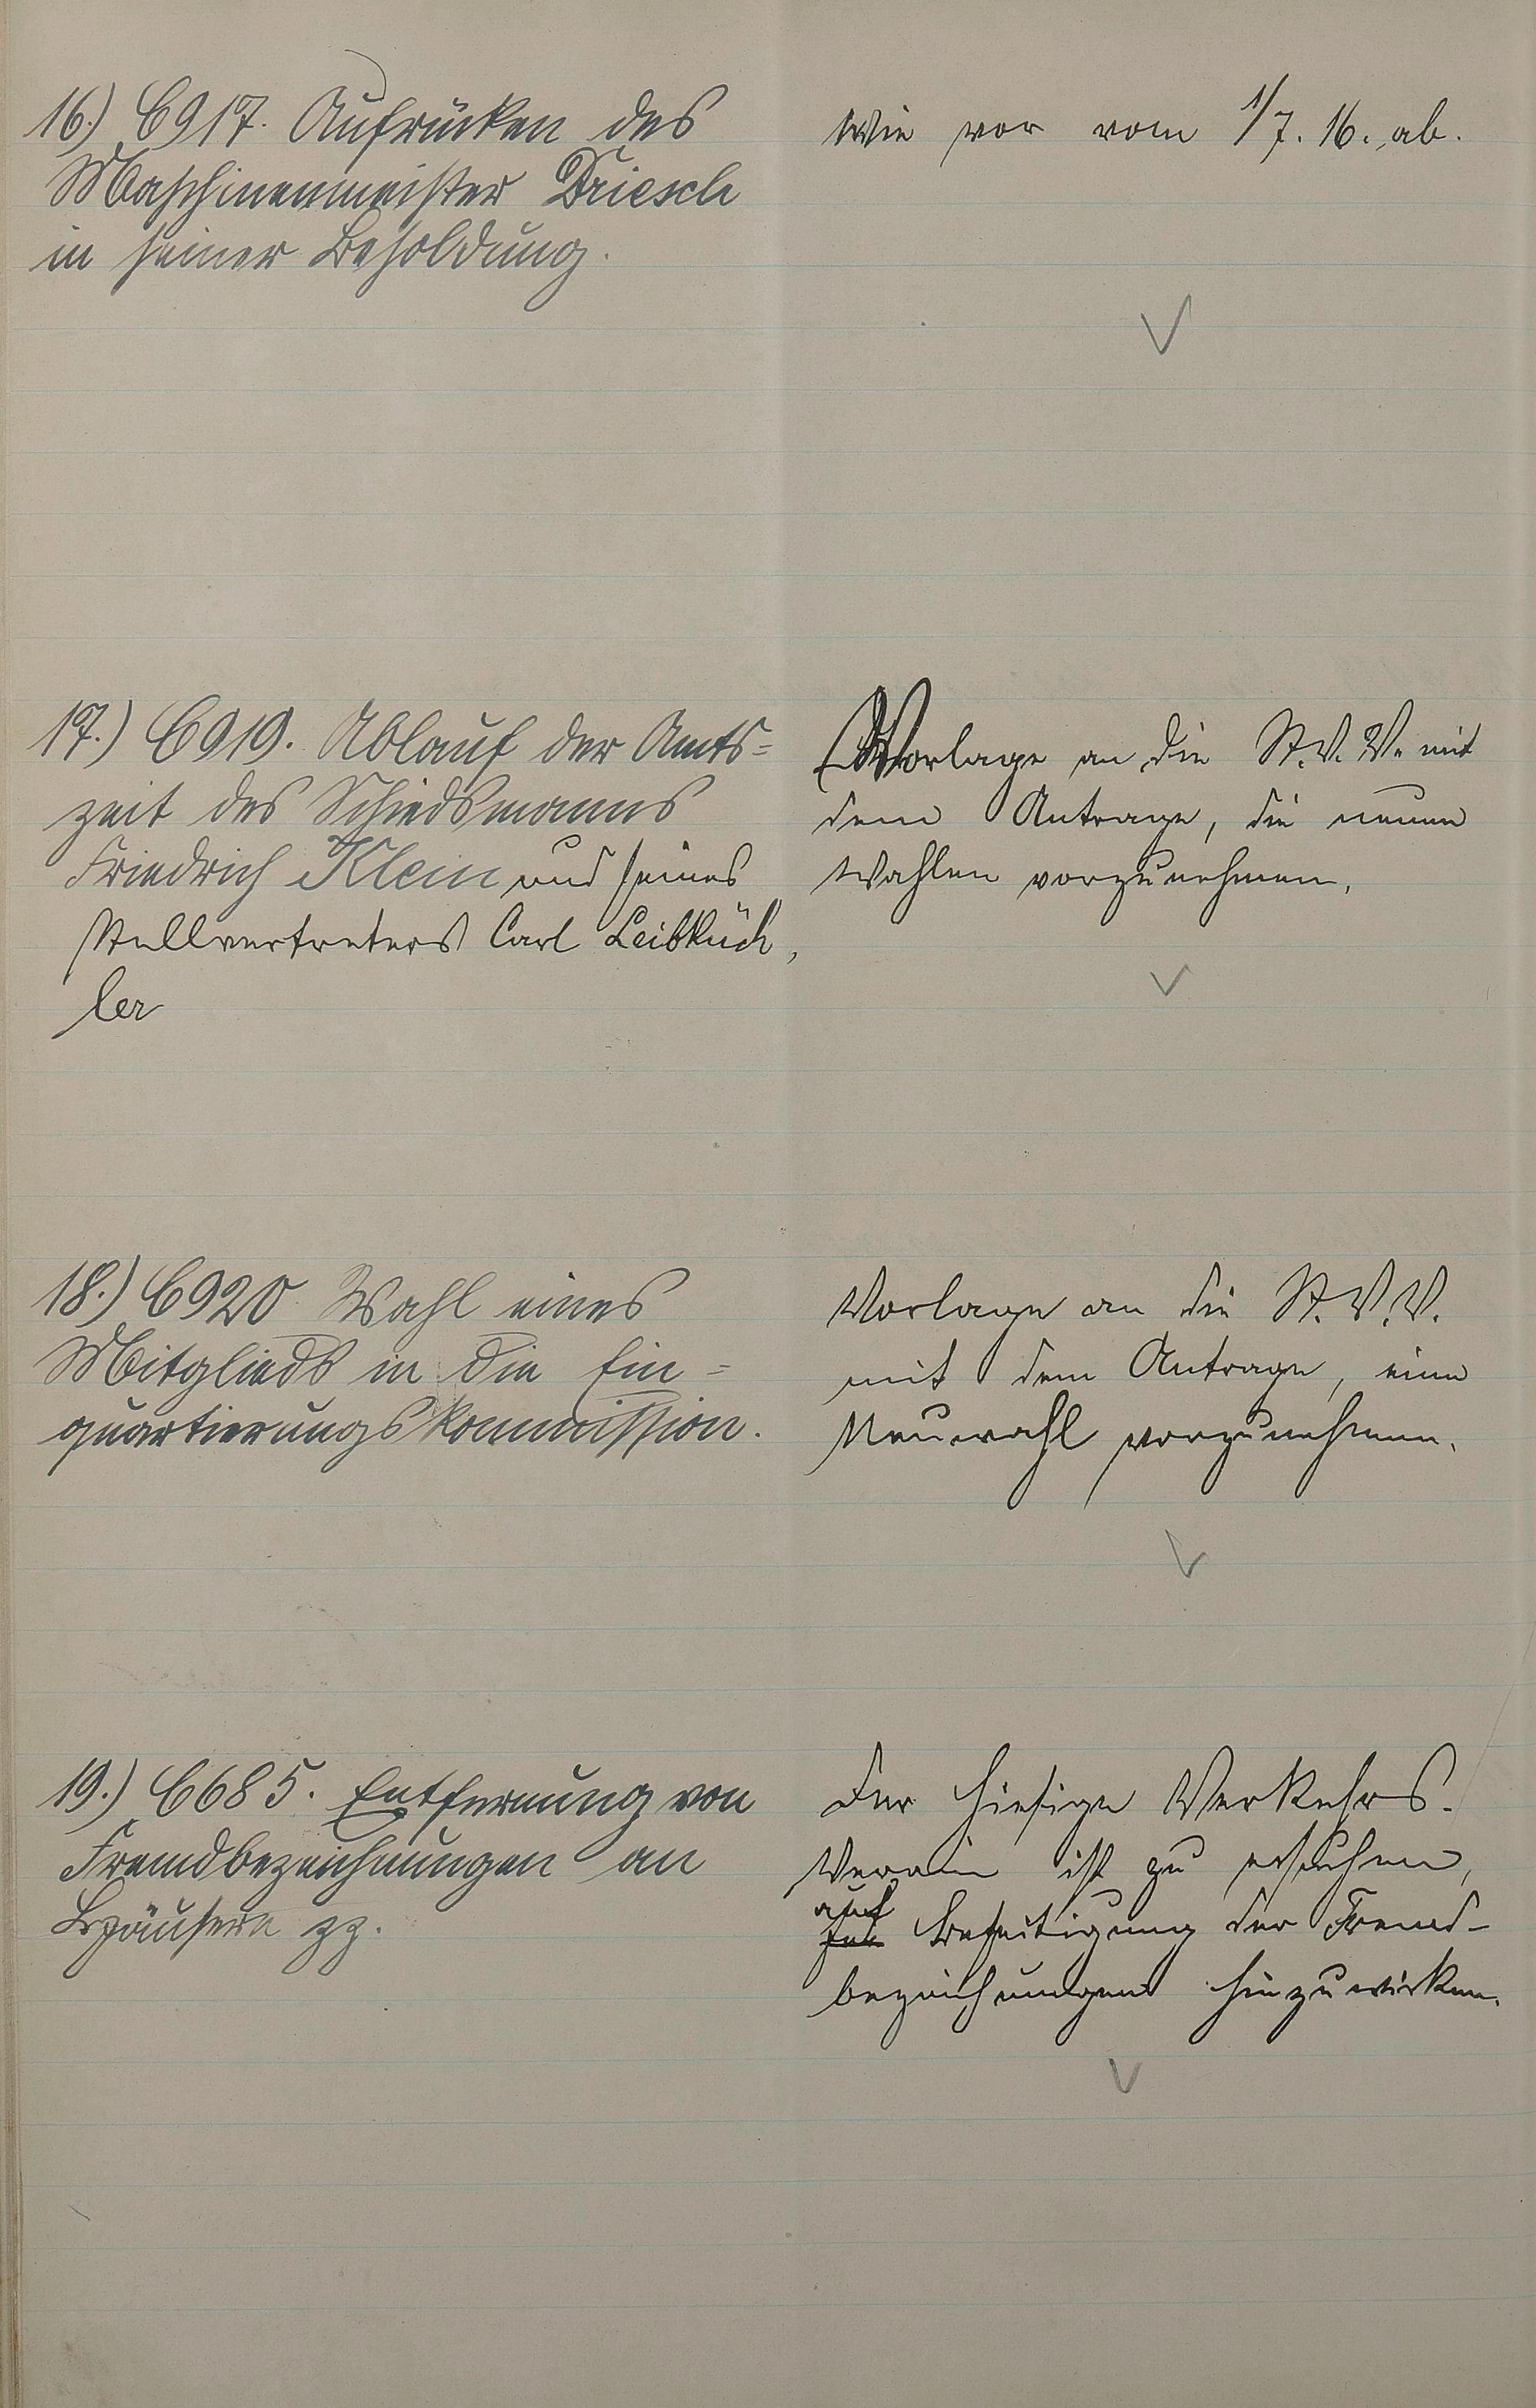 16.) C 917. Aufrücken des
Maschinenmeister Driesch
in seiner Besoldung.
Wie vor vom 1/7. 16. ab.
17.) C 919. Ablauf der Amts=
zeit des Schiedsmanns
Friedrich Klein und seines
Stellvertreters Carl Leibküch,
ler
Vorlage an die St. V. V. mit
dem Antrage, die neuen
Wahlen vorzunehmen.
18.) C 920 Wahl eines
Mitglieds in die Ein=
quartierungskommission.
Vorlage an die St. V. V.
mit dem Antrage, eine
Neuwahl vorzunehmen.
19.) C 685. Entfernung von
Fremdbezeichnungen an
zz.
Der hiesige Verkehrs-
Verein ist zu ersuchen,
auf
Beseitigung der Fremd-
bezeichnungen hinzuwirken.